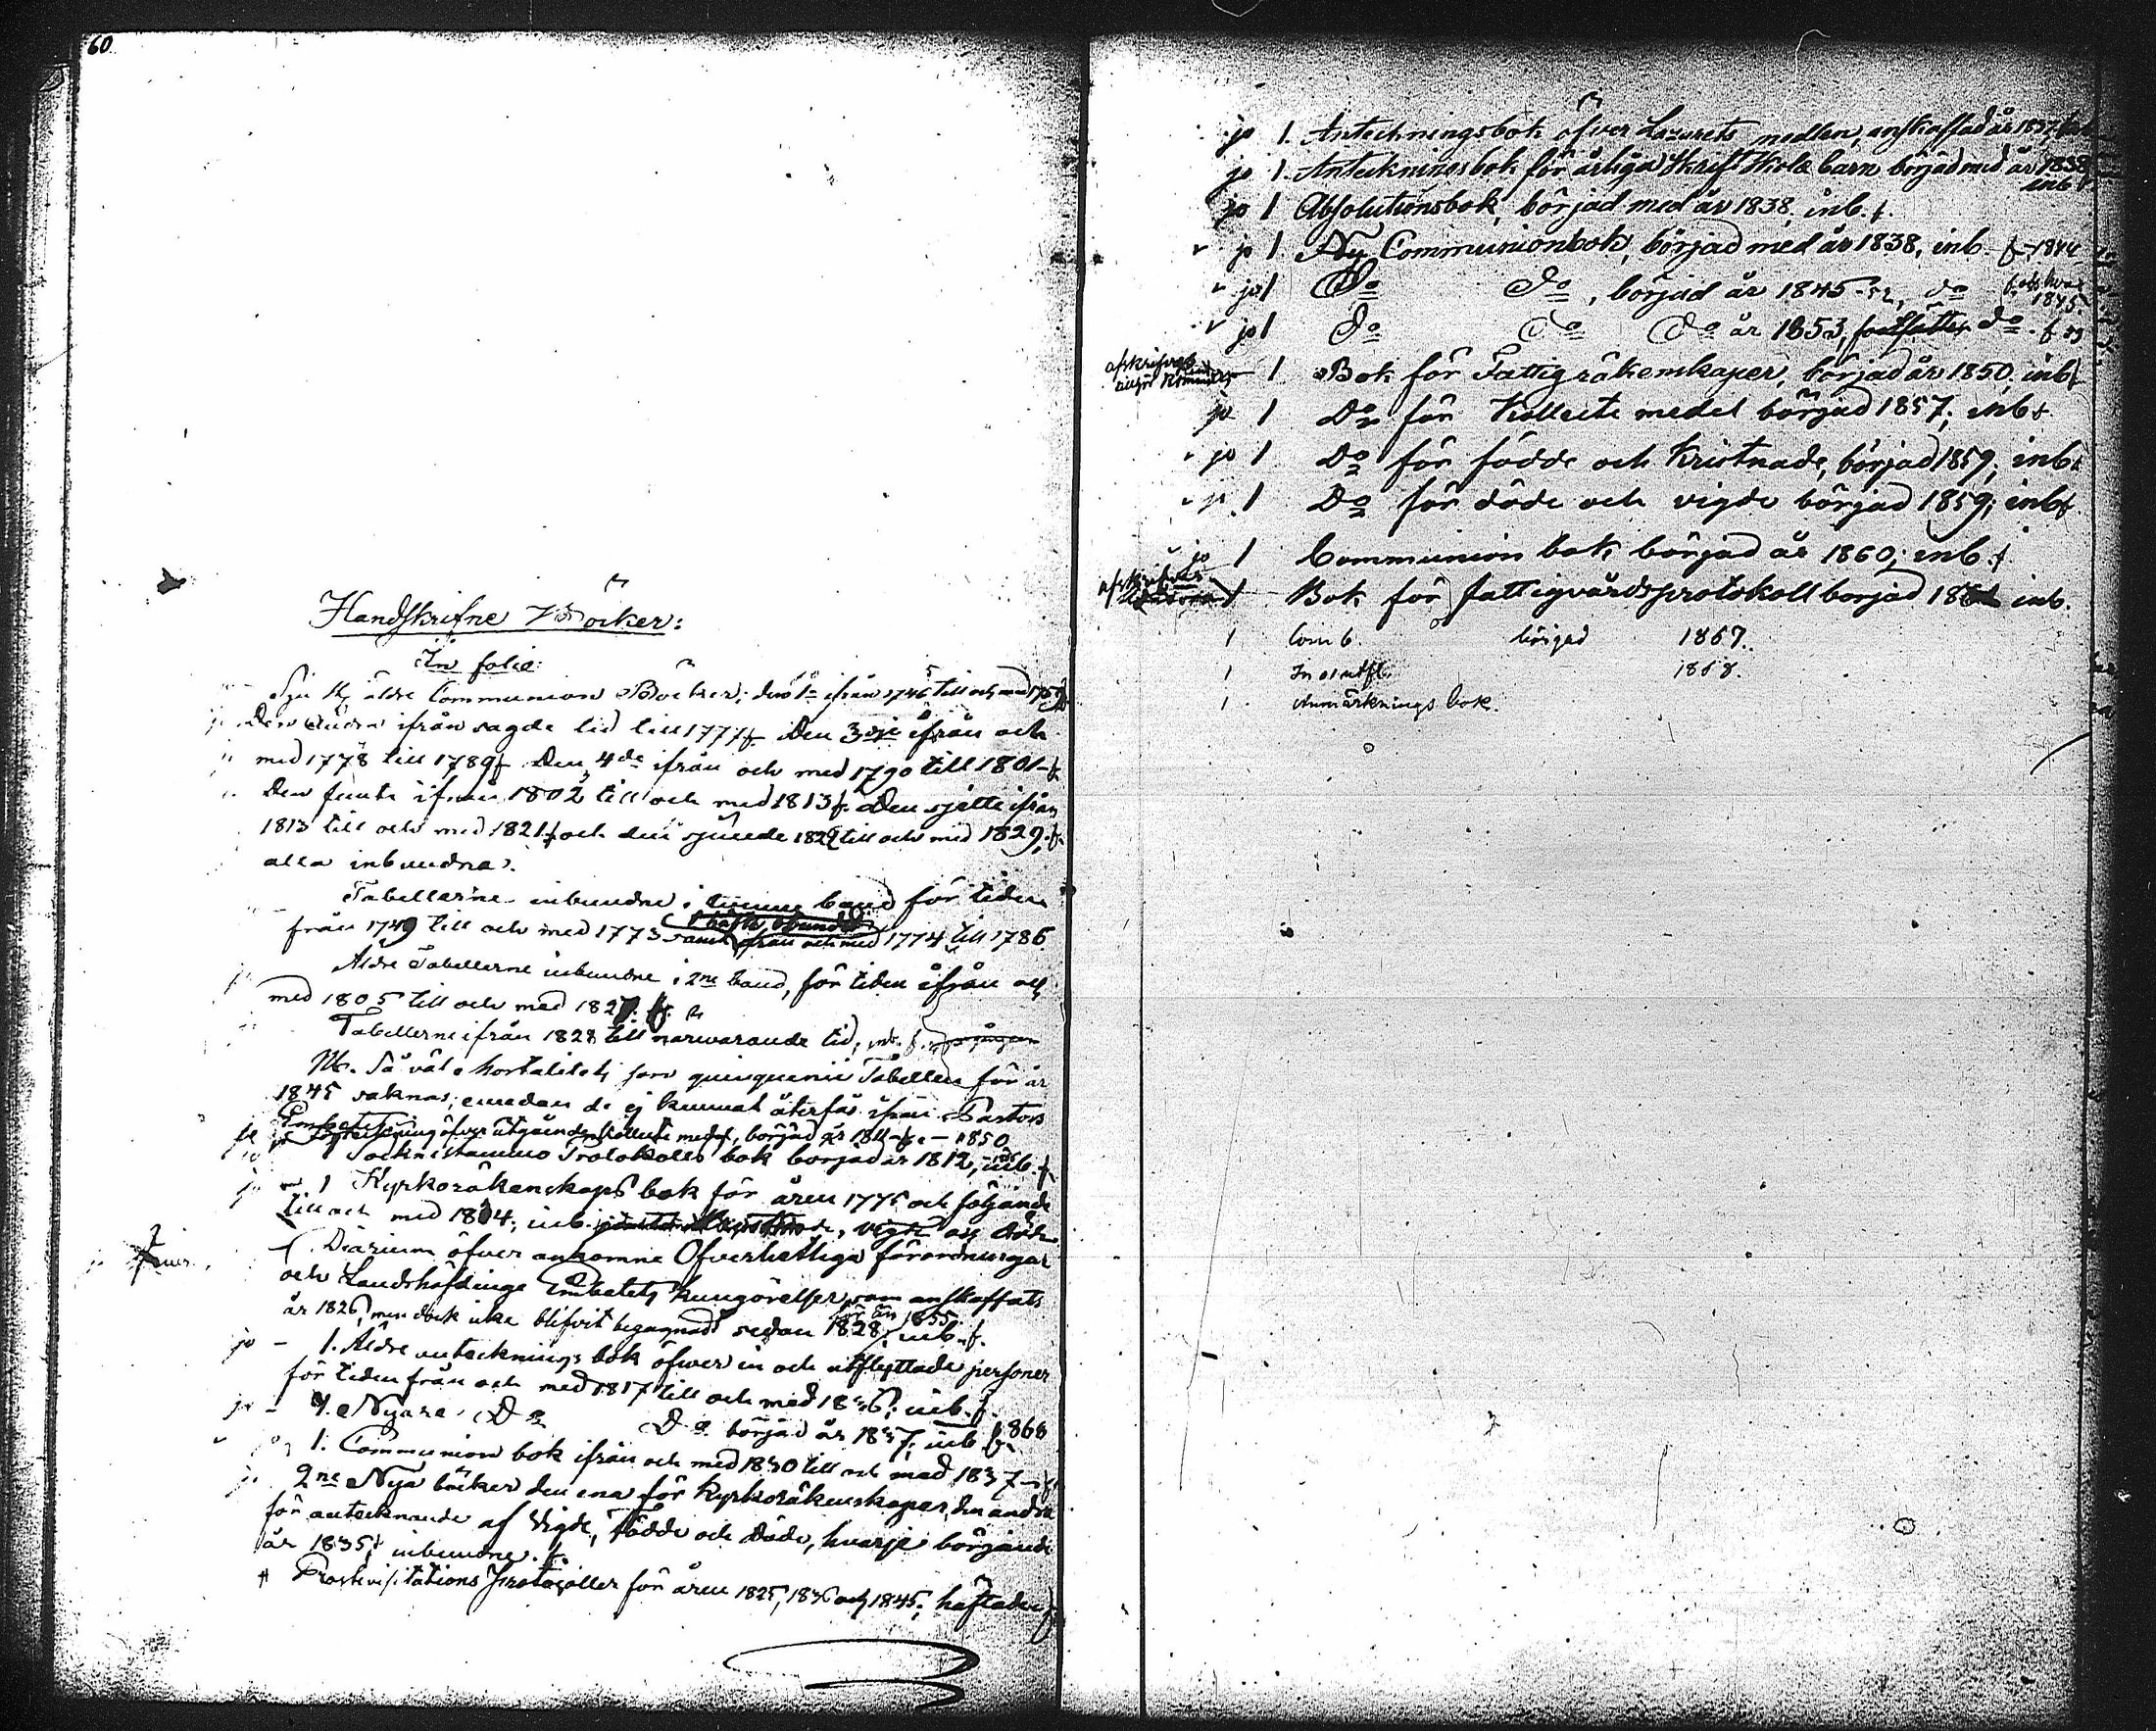 60
Handskrifne Böcker:
In folio:
Sju st. äldre Communion Böcker; den 1a ifrån 1746 till och med 1769
Den andra ifrån sagde tid till 1777 f. Den 3dje ifrån och
med 1778 till 1789 f. Den 4de ifrån och med 1790 till 1801 f.
Den femte ifrån 1802 till och med 1813 f. Den sjette ifrån
1813 till och med 1821 f. och den sjunde 1822 till och med 1829, f.
alla inbundna.
Tabellerne inbundne i band för tiden
1 häfte, obundit
från 1749 till och med 1773 samt ifrån och med 1774 till 1786.
jo Äldre Tabellerne inbundne i 2ne band, för tiden ifrån och
med 1805 till och med 1827. f.
Tabellerne ifrån 1828 till narwarande tid, inb. f.
Nb. Så väl Mortalitets som quinquenii Tabellen för år
1845 saknas, emedan de ej kunnat återfås ifrån Pastors
Embetet
jo öfver utgående Collect medel, börjad år 1811 f. - 1850
jo 1 Socknestämmo Protokolls bok börjad år 1812, inb. f.
jo - 1 Kyrkoräkenskaps bok för åren 1775 och följande
till och med 1804, inb. vigde och döde
1. Diarium öfver ankomne Öfverhetliga förordningar
och Landshöfdinge Embetets kungörelser, som anskaffats
år 1826, men dock icke blifvit begagnadt sedan 1828 förr än 1855. inb. f.
jo - 1. Äldre antecknings bok öfwer in och utflyttade personer
för tiden från och med 1817 till och med 1836; inb. f.
jo - 1. Nyare Do Do börjad år 1837, inb f. 1868
jo 1. Communion bok ifrån och med 1830 till och med 1837 - f.
jo 2ne Nya böcker den ena för Kyrkoräkenskaper, den andra
för antecknande af Vigde, Födde och Döde, hvarje börjande
år 1835, inbundne. f.
Prostvisitations Protocoller för åren 1825, 1836 och 1845, häftade f.
jo 1. Anteckningsbok öfver Lazarets medlen, anskaffad år 1837,
jo 1. Anteckningsbok för årliga Skrift Skole barn börjad med år 1838
inb f
jo 1 Absolutionsbok, börjad med år 1838. inb. f.
v jo 1 Ny Communionbok, börjad med år 1838, inb. f - 1844
v jo 1 Do Do, börjad år 1845-52, do
1845.
v jo 1 Do Do Do år 1853, fortsättes do. f
afskrifves
1 Bok för Fattigräkenskaper, börjad år 1850, inb f
jo 1 Do för Kollekt medel börjad 1857, inb f.
v jo 1 Do för födde och Kristnade, börjad 1859, inb f
v jo 1 Do för döde och vigde börjad 1859; inb f.
v jo 1 Communion bok, börjad år 1860, inb. f
afskrifves
1 Bok för Fattigvårdsprotokoll börjad inb.
1 Com b. börjad 1867.
1 In o utfl. 1868.
1 Anmärknings bok.